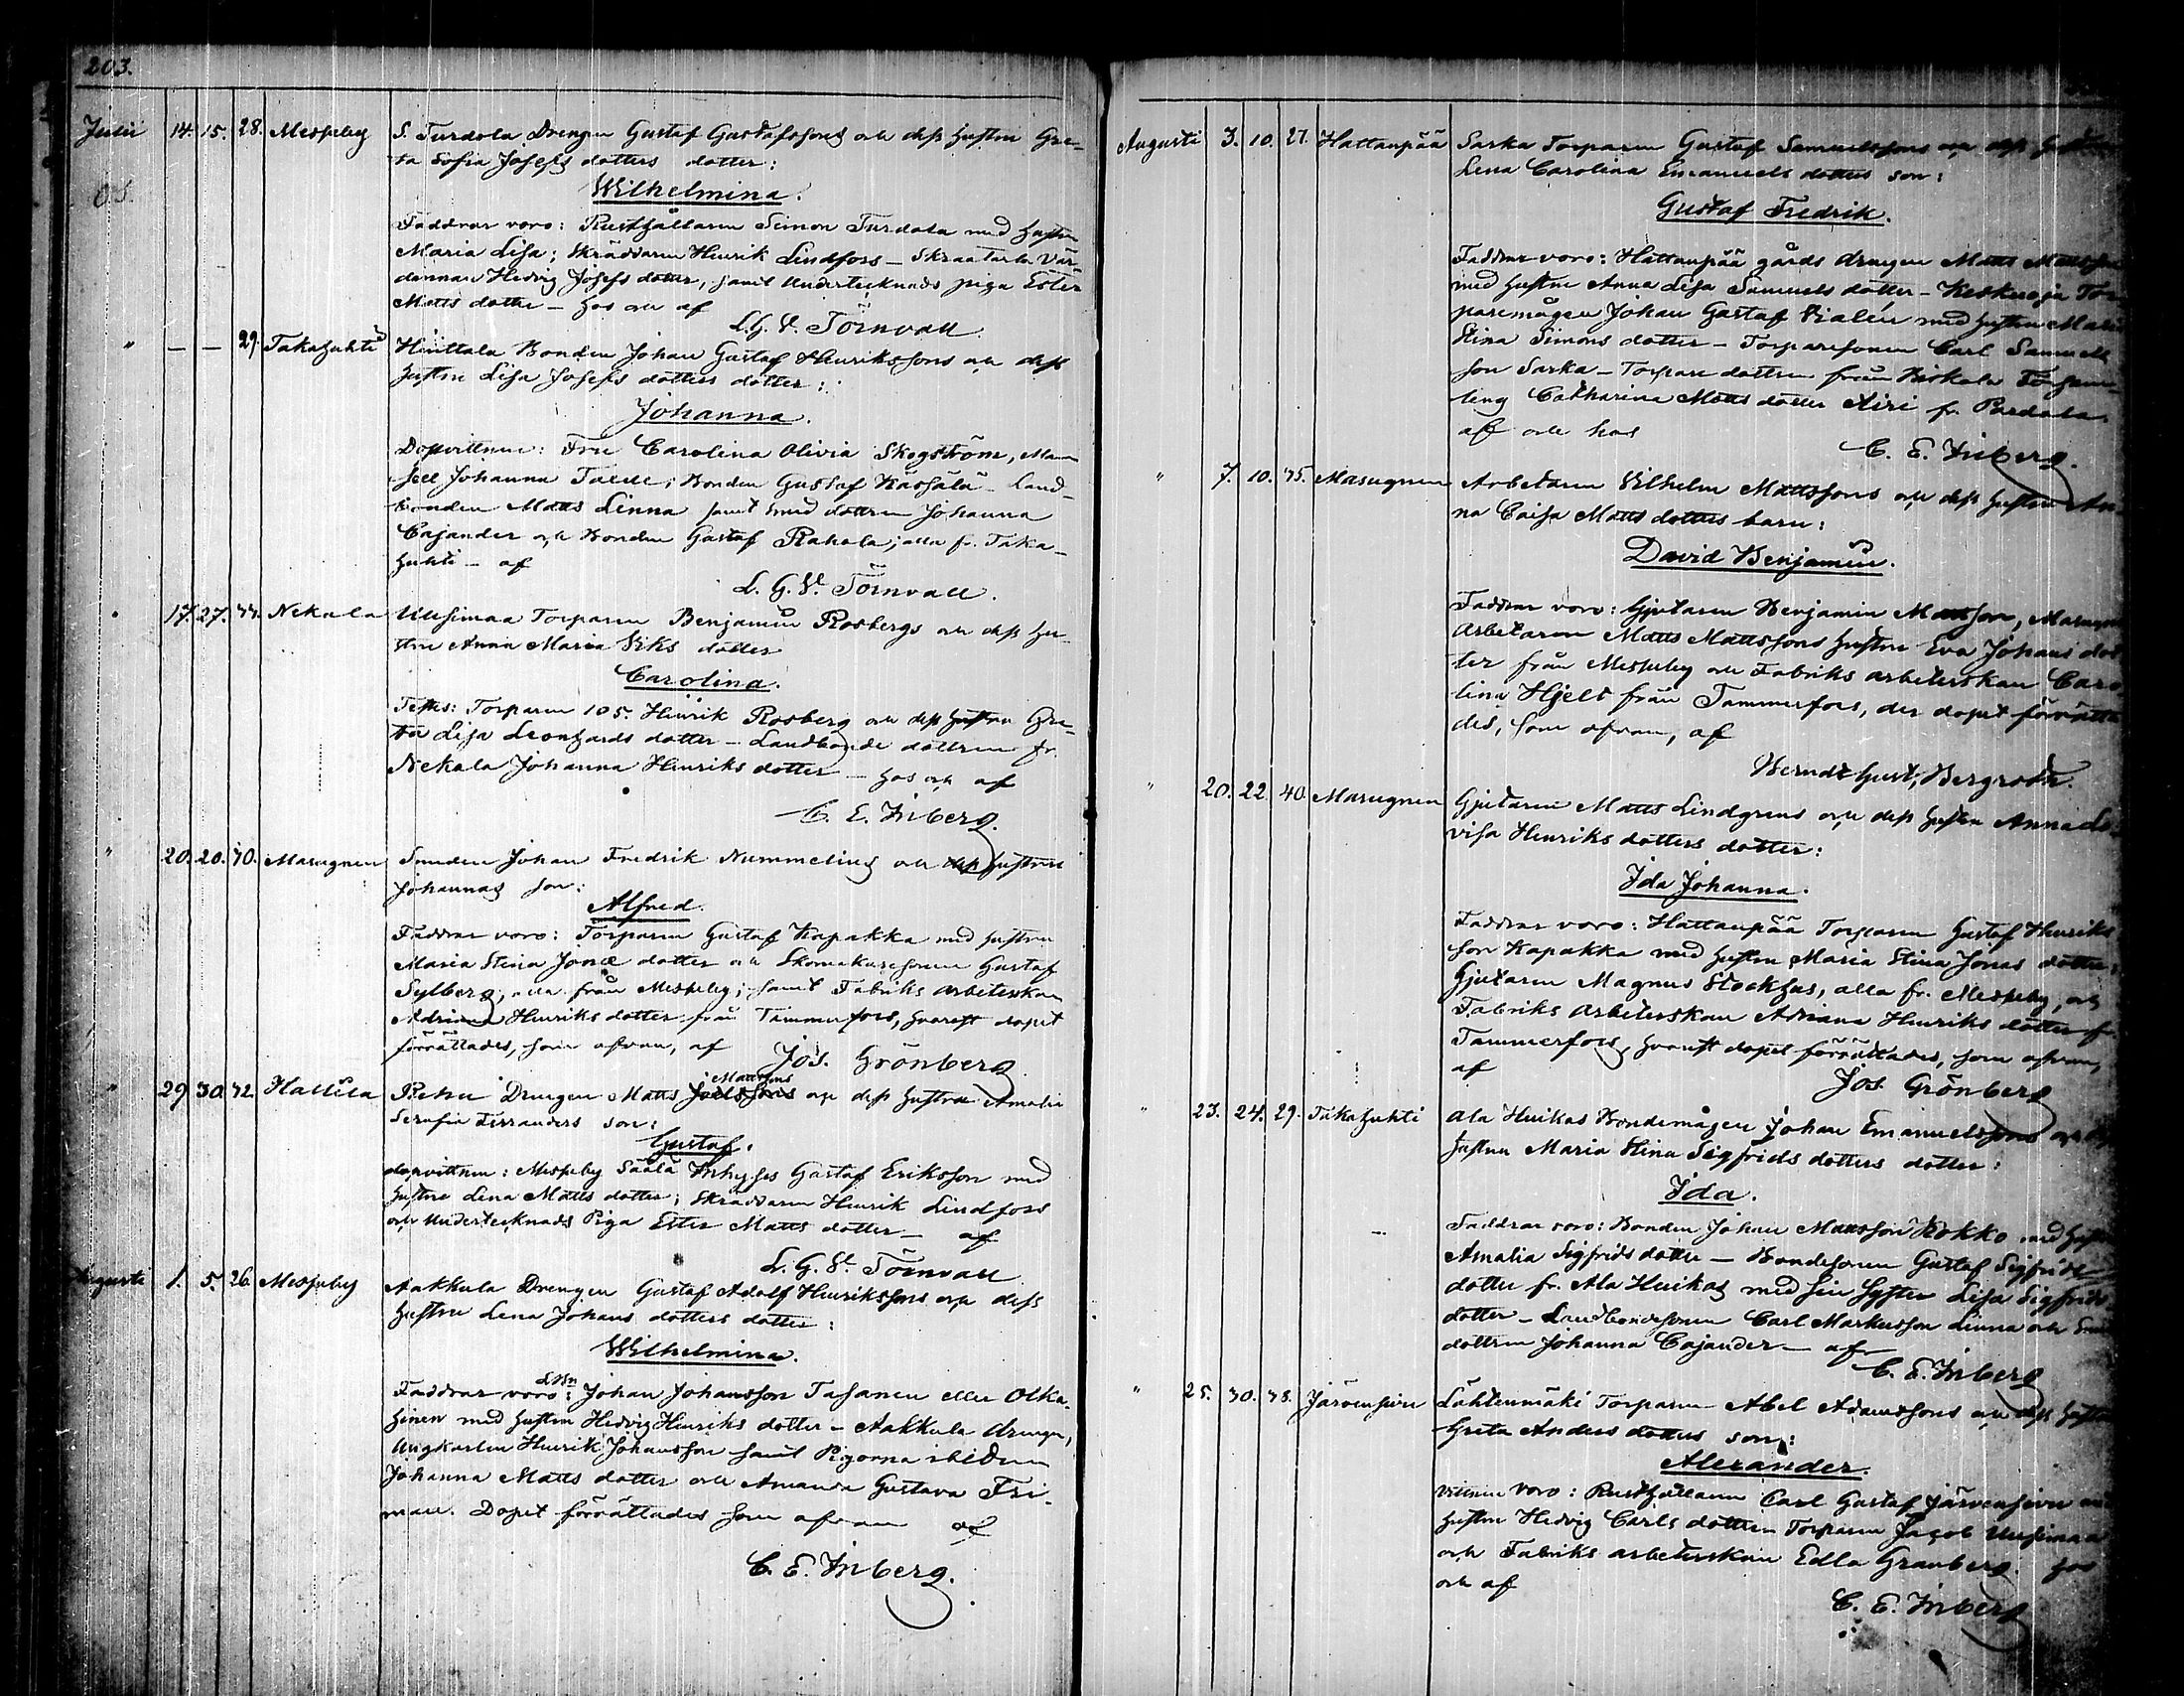 203.
Julii 14. 15. 28. Messuby S. Turdola Drengen Gustaf Gustafssons och dess hustru Gre-
ta Sofia Josefs dotters dotter:
Wilhelmina.
Faddrar voro: Rusthållaren Simon Turdola med hustru
Maria Lisa; Skräddaren Henrik Lindfors – Skraatarla Vär-
dinnan Hedvig Josefs dotter, samt Undertecknads piga Ester
Matts dotter – hos och af
L. G. V. Törnvall.
" — — 29. Takahuhti Hinttala Bonden Johan Gustaf Henrikssons och dess
hustru Lisa Josefs dotters dotter:
Johanna.
Dopvittnen: Fru Carolina Olivia Skogström, Mam-
sell Johanna ; Bonden Gustaf Kässälä – Land-
bonden Matts Linna samt Smed dottren Johanna
Cajander och Bonden Gustaf Rahola; alla fr. Taka-
huhti – af
L. G. Vl. Törnvall.
" 17. 27. 44. Nekala Uusimaa Torparen Benjamin Rosbergs och dess hu-
stru Anna Maria Eriks dotter
Carolina.
Testes: Torparen 105. Henrik Rosberg och dess hustru Gre-
ta Lisa Leonhards dotter – Landbonde dottren fr.
Nekala Johanna Henriks dotter – hos och af
C. E. Inberg.
" 20. 20. 40. Masugnen Smeden Johan Fredrik Nummelins och dess hustrus
Johannas son:
Alfred.
Faddrar voro: Torparen Gustaf Kapakka med hustru
Maria Stina Jonæ dotter och Skomakaresonen Gustaf
Sylberg, alla från Messuby; samt Fabriks arbeterskan
Adriana Henriks dotter från Tammerfors, hvarest dopet
förrättades, som ofvan, af Jos. Grönberg
" 29. 30. 42. Hallila Drengen Matts Joelssons Mattssons och dess hustru Amalia
Serafia son:
Gustaf.
dopvittnen: Messuby Säälä Inhyses Gustaf Eriksson med
hustru Lena Matts dotter; Skräddaren Henrik Lindfors
och Undertecknads Piga Ester Matts dotter – af
L. G. Vl. Törnvall
Augusti 1. 5. 26. Messuby Aakkula Drengen Gustaf Adolf Henrikssons och dess
hustru Lena Johans dotters dotter:
Wilhelmina.
Faddrar voro: Johan Johansson Tasanen eller Olka-
hinen med hustru Hedvig Henriks dotter – Aakkula drengen,
Ungkarlen Henrik Johansson samt Pigorna ibidem
Johanna Matts dotter och Amanda Gustava Fri-
man. Dopet förrättades som ofvan af
C. E. Inberg.
Augusti 3. 10. 27. Hattanpää Sarka Torparen Gustaf Samuelssons och dess hustru
Lena Carolina Emanuels dotters son:
Gustaf Fredrik.
Faddrar voro: Hattanpää gårds drengen Matts Mattsson
med hustru Anna Lisa Samuels dotter – Keskusoja Tor-
paremågen Johan Gustaf med hustru Maria
Stina Simons dotter – Torparesonen Carl Samuels
son Sarka – Torpare dottren från
Catharina Matts dotter fr. Pardola.
af och hos
C. E. Inberg.
" 7. 10. 45. Masugnen Arbetaren Vilhelm Mattssons och dess hustru An-
na Caisa Matts dotters barn:
David Benjamin.
Faddrar voro: Gjutaren Benjamin Mattsson, Masugns
Arbetaren Matts Mattssons hustru Eva Johans dot-
ter från Messuby och Fabriks arbeterskan Caro-
lina Hjelt från Tammerfors, der dopet förrätta-
des, som ofvan, af
Berndt Gust. Bergroth.
" 20. 22. 40. Masugnen Gjutaren Matts Lindgrens och dess hustru Anna Lo-
visa Henriks dotters dotter:
Ida Johanna.
Faddrar voro: Hattanpää Torparen Gustaf Henriks
son Kapakka med hustru Maria Stina Jonas dotter;
Gjutaren Magnus Stockfas, alla fr. Messuby, och
Fabriks arbeterskan Adriana Henriks dotter fr.
Tammerfors, hvarest dopet förrättades, som ofvan,
af Jos. Grönberg
" 23. 24. 29. Takahuhti Ala Huikas Bondemågen Johan Emanuelssons och dess
hustru Maria Stina Sigfrids dotters dotter:
Ida.
Faddrar voro: Bonden Johan Mattsson Kokko med hustru
Amalia Sigfrids dotter – Bondesonen Gustaf Sigfrids
dotter fr. Ala Huikas med sin syster Lisa Sigfrids
dotter – Landbondesonen Carl Markusson Linna och Smed
dottren Johanna Cajander – af
C. E. Inberg
" 25. 30. 43. Järvensivu Lähtenmäki Torparen Abel Adamssons och dess hustru
Greta Anders dotters son:
Alexander.
Vittnen voro: Rusthållaren Carl Gustaf Järvensivu med
hustru Hedvig Carls dotter – Torparen Jacob Uusimaa
och Fabriks arbeterskan Edla Granberg. hos
och af
C. E. Inberg